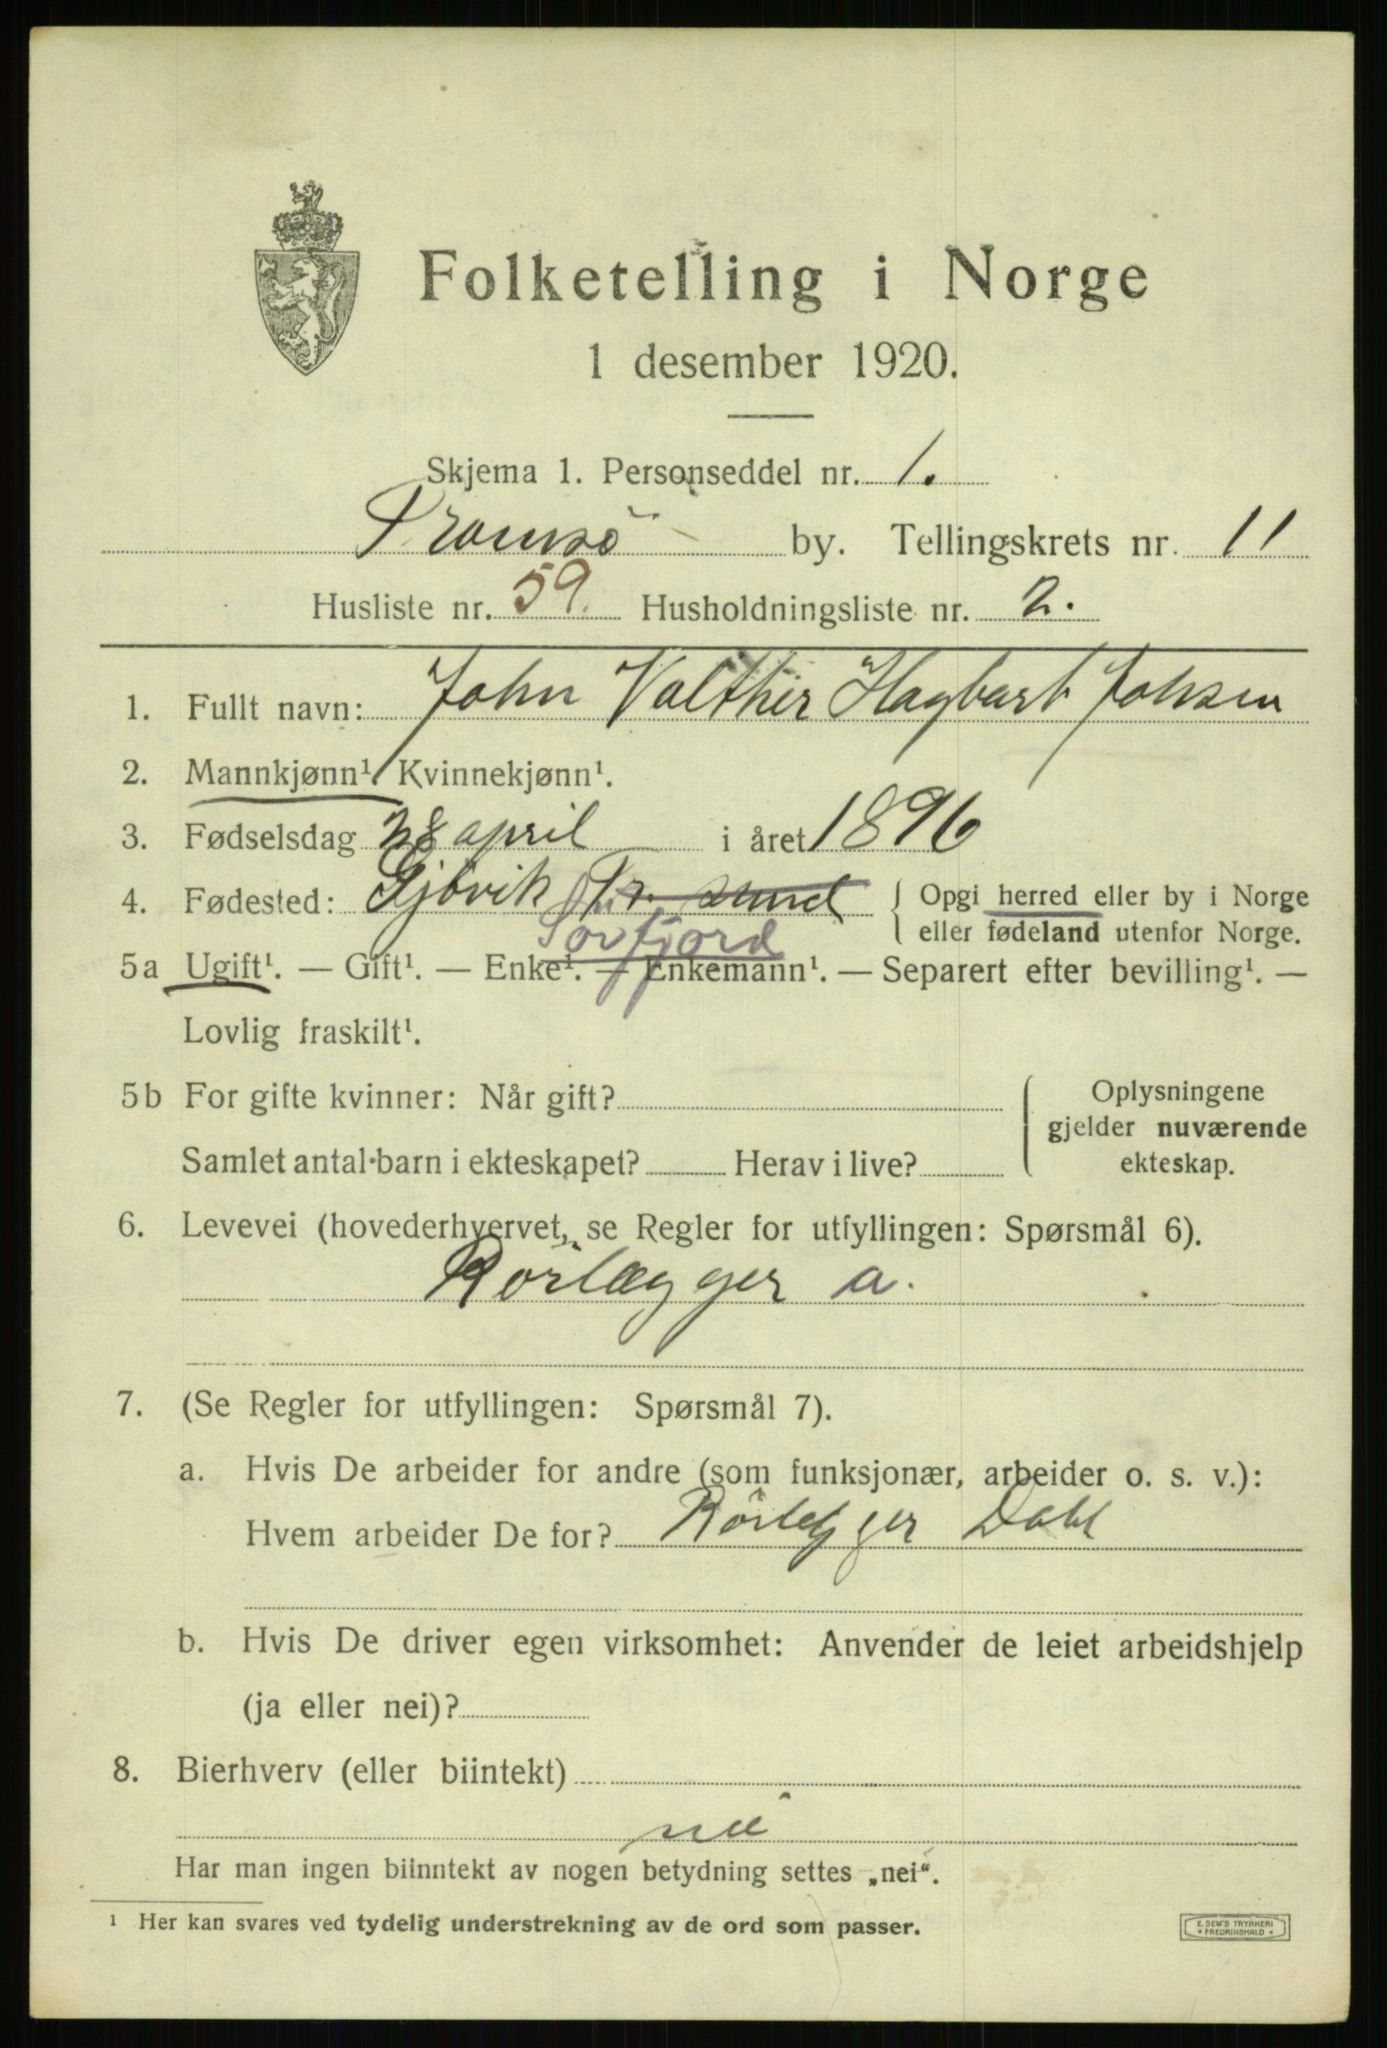 Folketelling i Norge
1 desember 1920.
Skjema 1. Personseddel nr. 1.
Tromsö by. Tellingskrets nr. 11
Husliste nr. 59. Husholdningsliste nr. 2.
1. Fullt navn: John Valther Hagbart Johsen
2. Mannkjønn¹ Kvinnekjønn¹.
3. Fødselsdag 28 april i året 1896
4. Fødested: Gjövik Tr. sund { Opgi herred eller by i Norge
Sörfjord eller fødeland utenfor Norge.
5a Ugift¹. — Gift¹. — Enke¹. — Enkemann¹. — Separert efter bevilling¹. —
Lovlig fraskilt¹.
5b For gifte kvinner: Når gift? Oplysningene
gjelder nuværende
Samlet antal barn i ekteskapet? Herav i live? ekteskap.
6. Levevei (hovederhvervet, se Regler for utfyllingen: Spørsmål 6).
Rörlægger a.
7. (Se Regler for utfyllingen: Spørsmål 7).
a. Hvis De arbeider for andre (som funksjonær, arbeider o. s. v.):
Hvem arbeider De for? Rörlegger Dahl
b. Hvis De driver egen virksomhet: Anvender de leiet arbeidshjelp
(ja eller nei)?
8. Bierhverv (eller biintekt)
nei
Har man ingen biinntekt av nogen betydning settes „nei“.
¹ Her kan svares ved tydelig understrekning av de ord som passer.
E. SEM'S TRYKKERI
* FREDRIKSHALD *